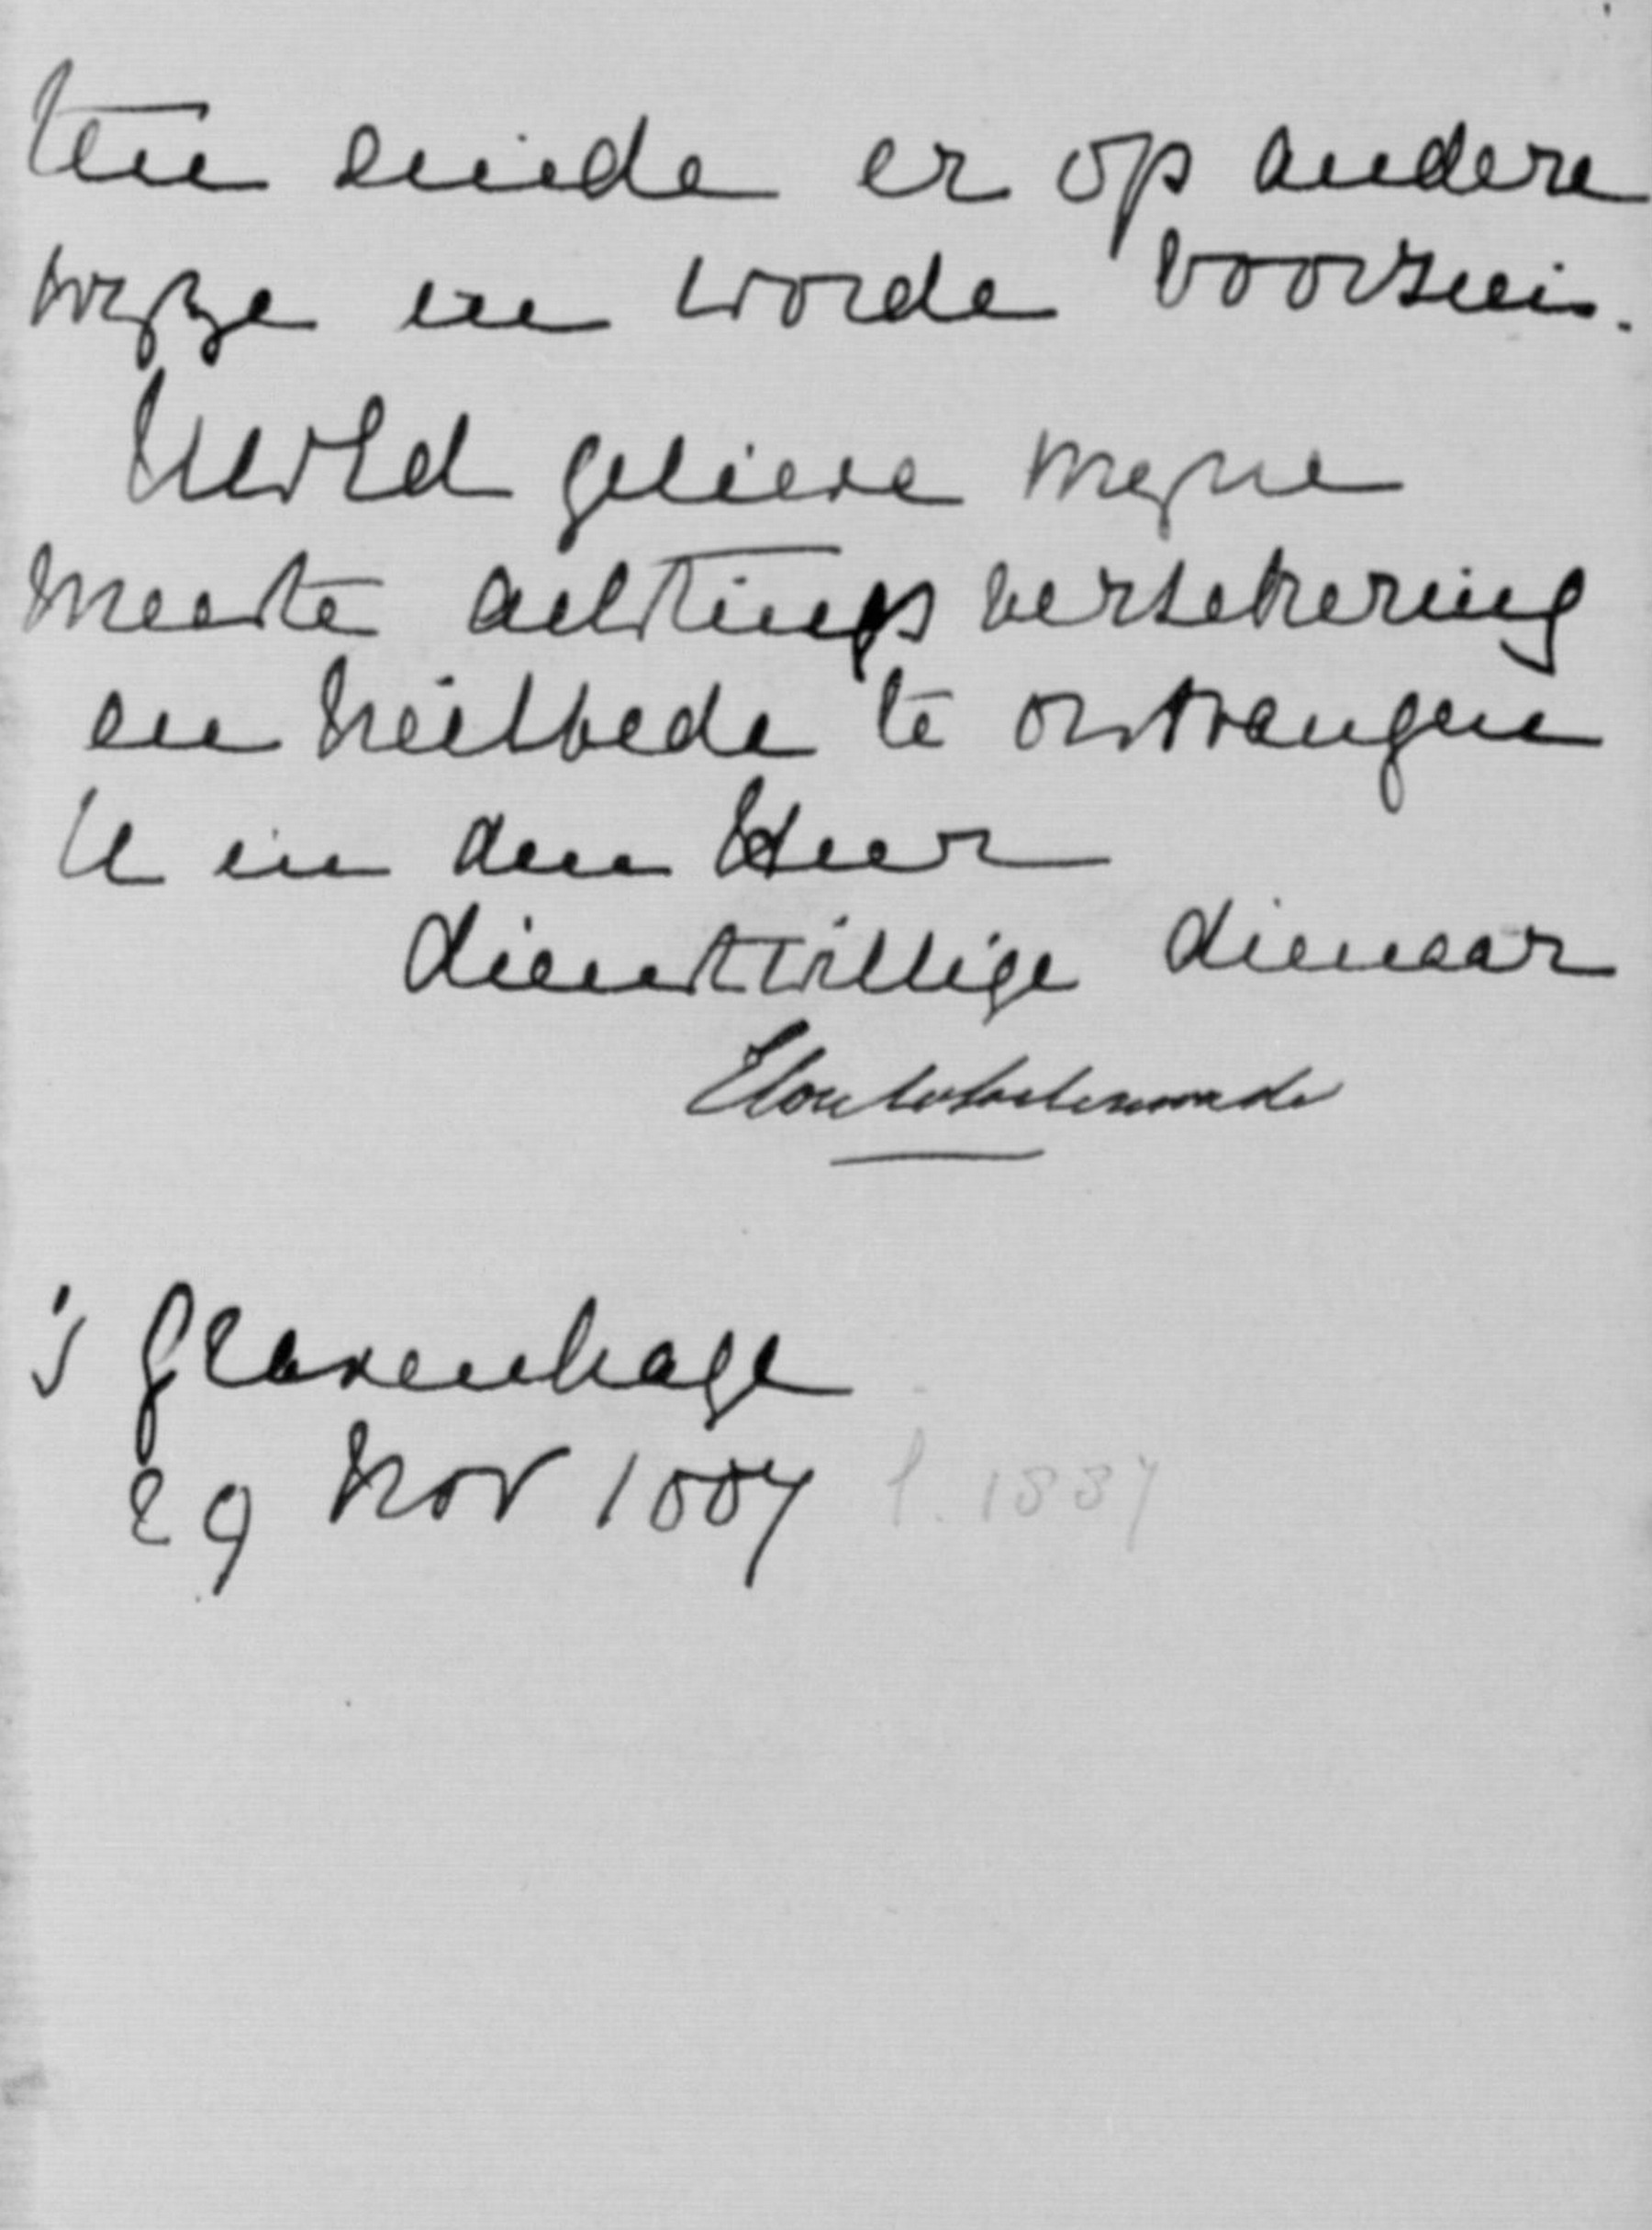 ten einde er op andere
wijze in worde voorzien.
UwEd gelieve mijne
meeste achtingsverzekering
en heilbede te ontvangen
U in den Heer
dienstwillige dienaar
Elout v Soeterwoude
's Gravenhage
29 Nov 1887 f. 1887